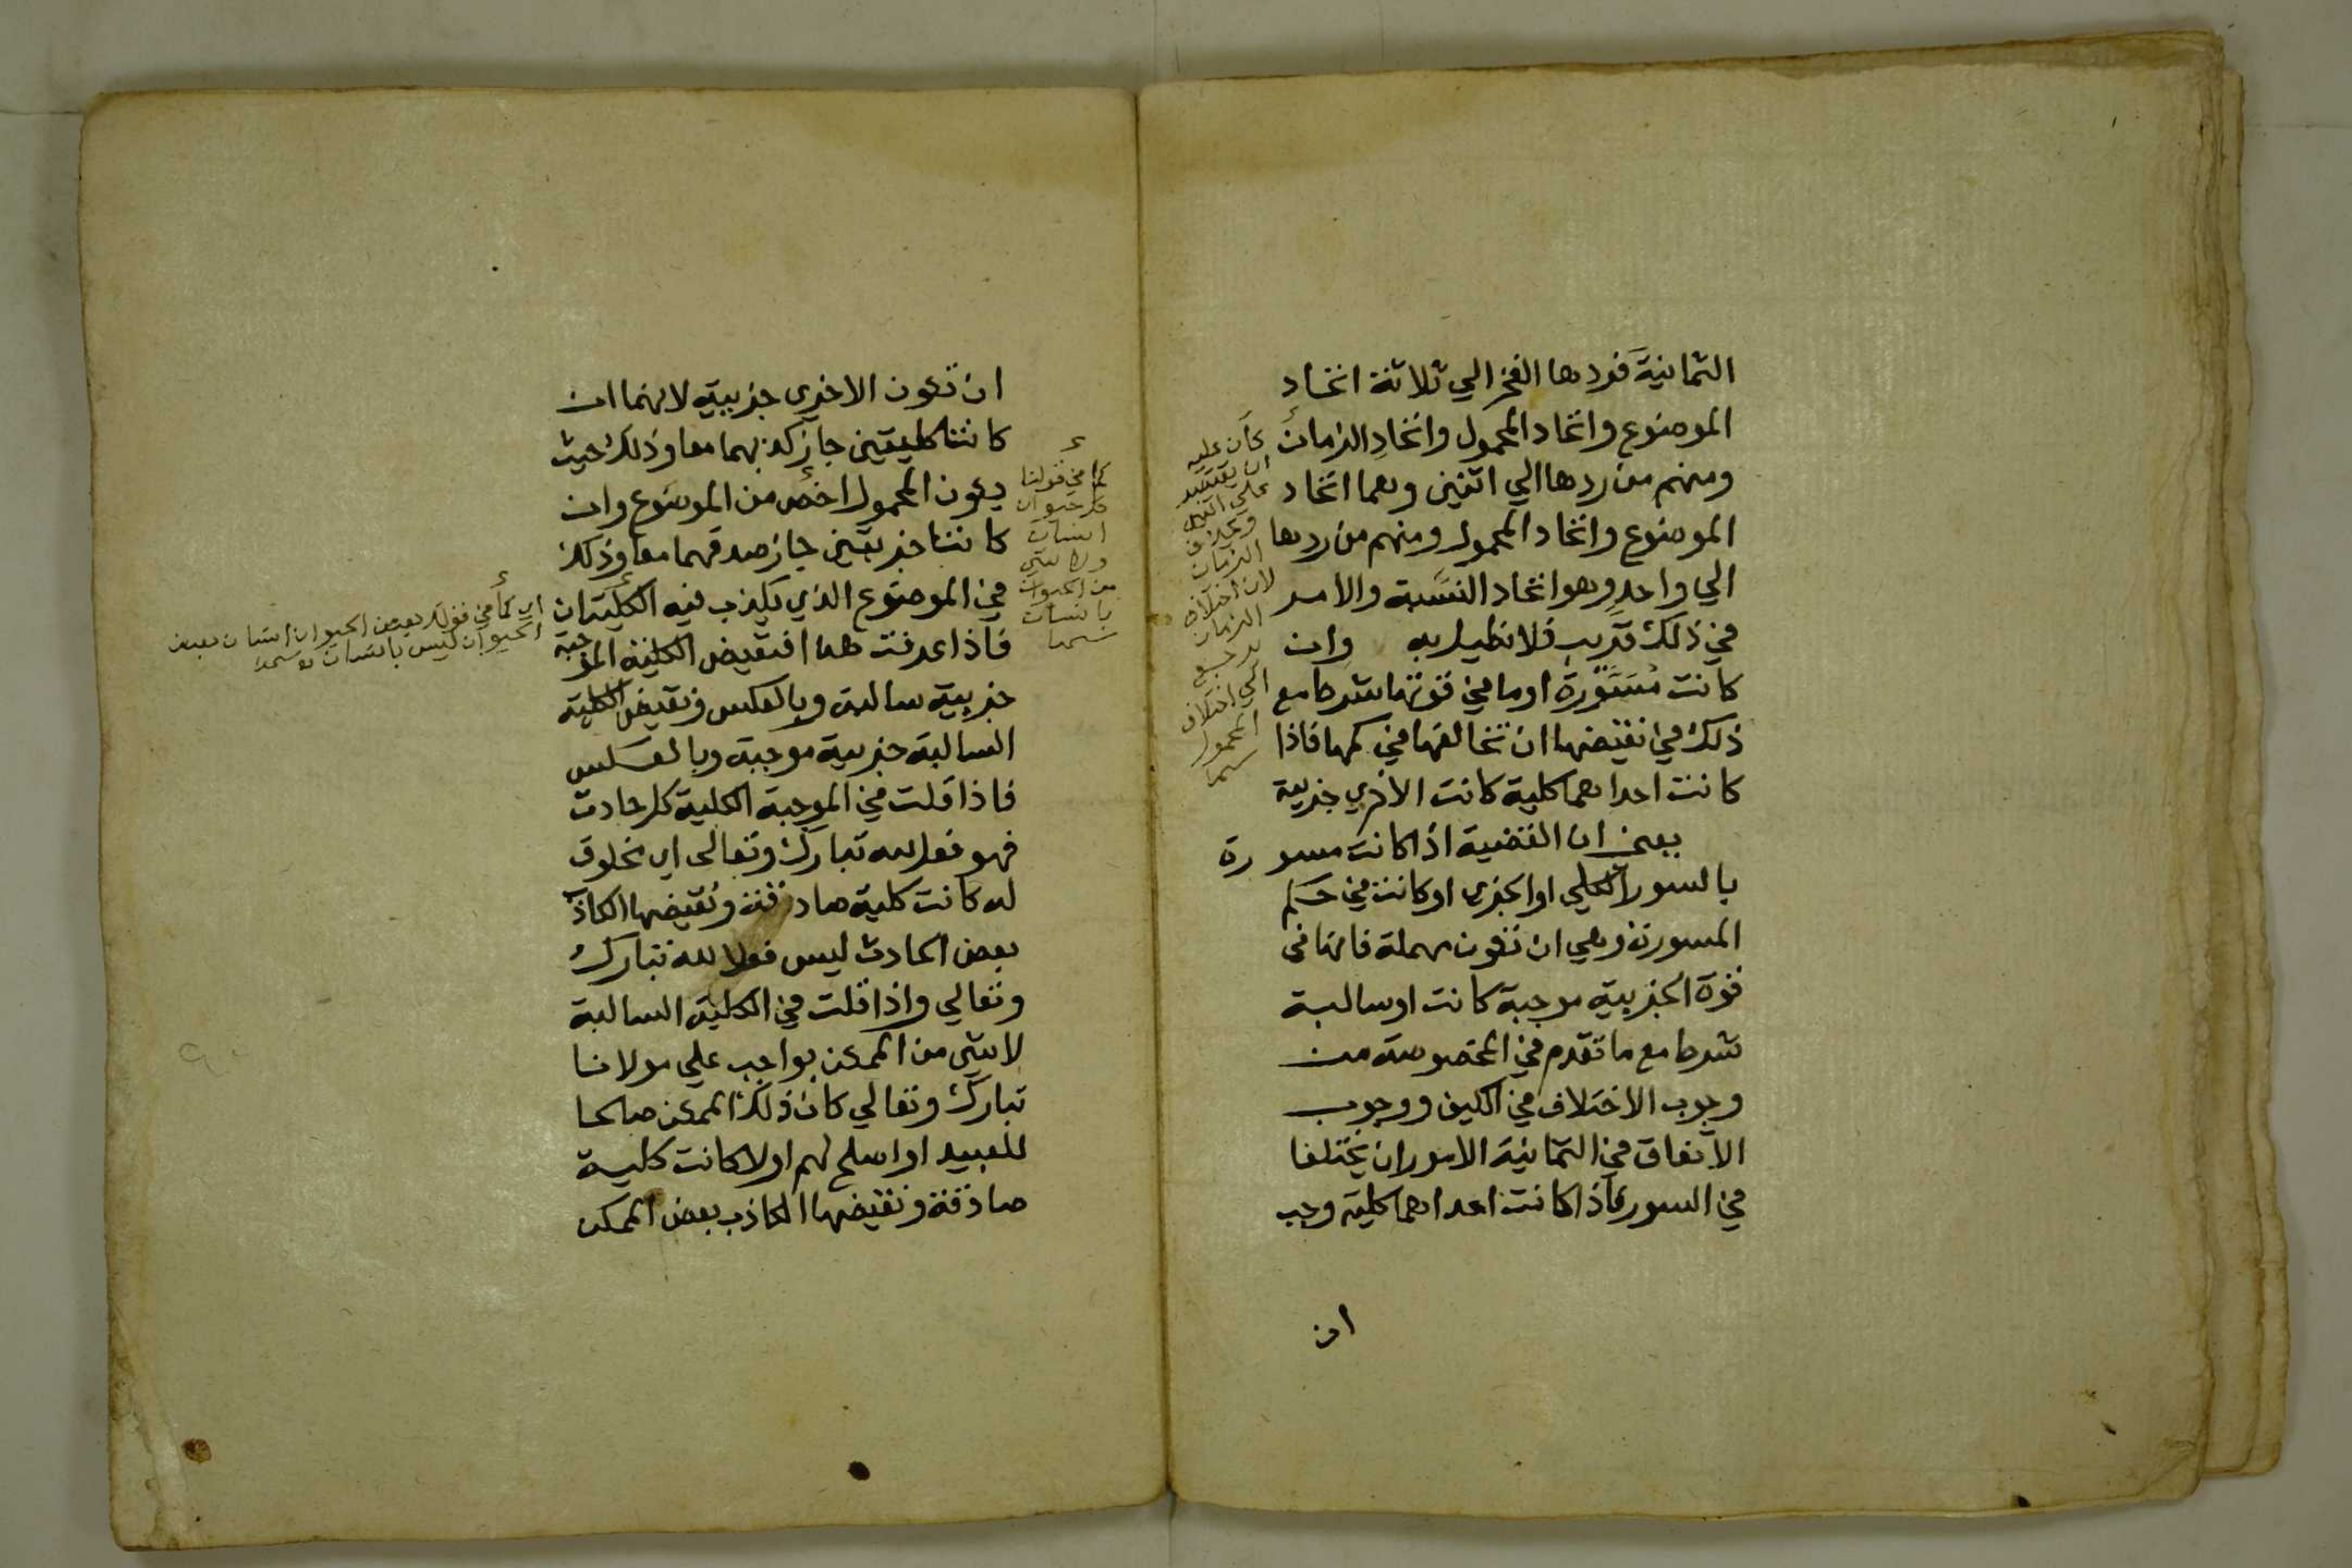 الثمانية فردها الفخر الي ثلاثة اتحاد
الموضوع واتحاد المحمول واتحاد الزمان
ومنهم من ردها الي اثنين وهما اتحاد
الموضوع واتحاد المحمول ومنهم من ردها
الي واحد وهو اتحاد النسبة والامر
في ذلك قريب فلا نطيل به وان
كانت مسورة او ما في قوتها شرط مع
ذلك في نقيضها ان تخالفها في كمها فاذا
كانت احداهما كلية كانت الاخري جزيية
يعني ان القضية اذا كانت مسورة
بالسور الكلي او الجزي او كانت في حكم
المسورة وهي ان تكون مهملة فانها في
قوة الجزيية موجبة كانت او سالبة
شرط مع ما تقدم في المخصوصة من
وجوب الاختلاف في الكيف ووجوب
الاتفاق في الثمانية الامور ان يختلفا
في السور فاذا كانت احداهما كلية وجب
ان
كان عليه
ان يقتصر
علي
الزمان
لان اختلاف
الزمان
يرجع
الي اختلاف
المحمول
ان تكون الاخري جزيية لانهما ان
كانتا كليتين جاز كذبهما معا وذلك حيث
يكون المحمول اخص من الموضوع وان
كانتا جزيتين جاز صدقهما معا وذلك
في الموضوع الذي يكذب فيه الكليتان
فاذا عرفت هذا فنقيض الكلية الموجبة
جزيية سالبة وبالعكس ونقيض الكلية
السالبة جزيية موجبة وبالعكس
فاذا قلت في الموجبة الكلية كل حادث
فهو فعل لله تبارك وتعالى اي مخلوق
له كانت كلية صادقة ونقيضها الكاذب
بعض الحادث ليس فعلا لله تبارك
وتعالي واذا قلت في الكلية السالبة
لا شي من الممكن بواجب علي مولانا
تبارك وتعالي كان ذلك الممكن صالحا
للعبيد او اصلح لهم اولا كانت كلية
صادقة ونقيضها الكاذب بعض الممكن
كما في قولنا
كل حيوان
انسان
ولا شي
من الحيوان
بانسان
اي كما في قولك بعض الحيوان انسان بعض
الحيوان ليس بانسان